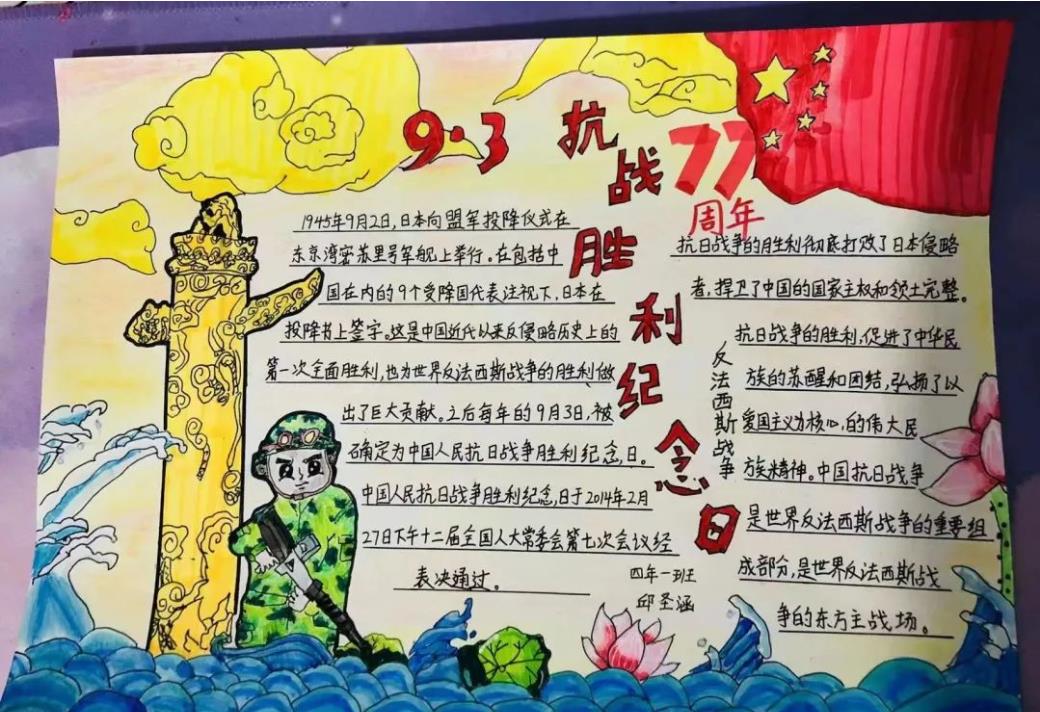 9·3
抗战胜利纪念日
77
周年
1945年9月2日,日本向盟军投降仪式在
东京湾密苏里号军舰上举行。在包括中
国在内的9个受降国代表注视下,日本在
投降书上签字。这是中国近代以来反侵略历史上的
第一次全面胜利,也为世界反法西斯战争的胜利做
出了巨大贡献。之后每年的9月3日,被
确定为中国人民抗日战争胜利纪念,日。
中国人民抗日战争胜利纪念,日于2014年2月
27日下午十二届全国人大常委会第七次会议经
表决通过。
四年一班
邱圣涵
抗日战争的胜利彻底打败了日本侵略
者,捍卫了中国的国家主权和领土完整。
反法西斯战争
抗日战争的胜利,促进了中华民
族的苏醒和团结,弘扬了以
爱国主义为核心,的伟大民
族精神。中国抗日战争
是世界反法西斯战争的重要组
成部分,是世界反法西斯战
争的东方主战场。